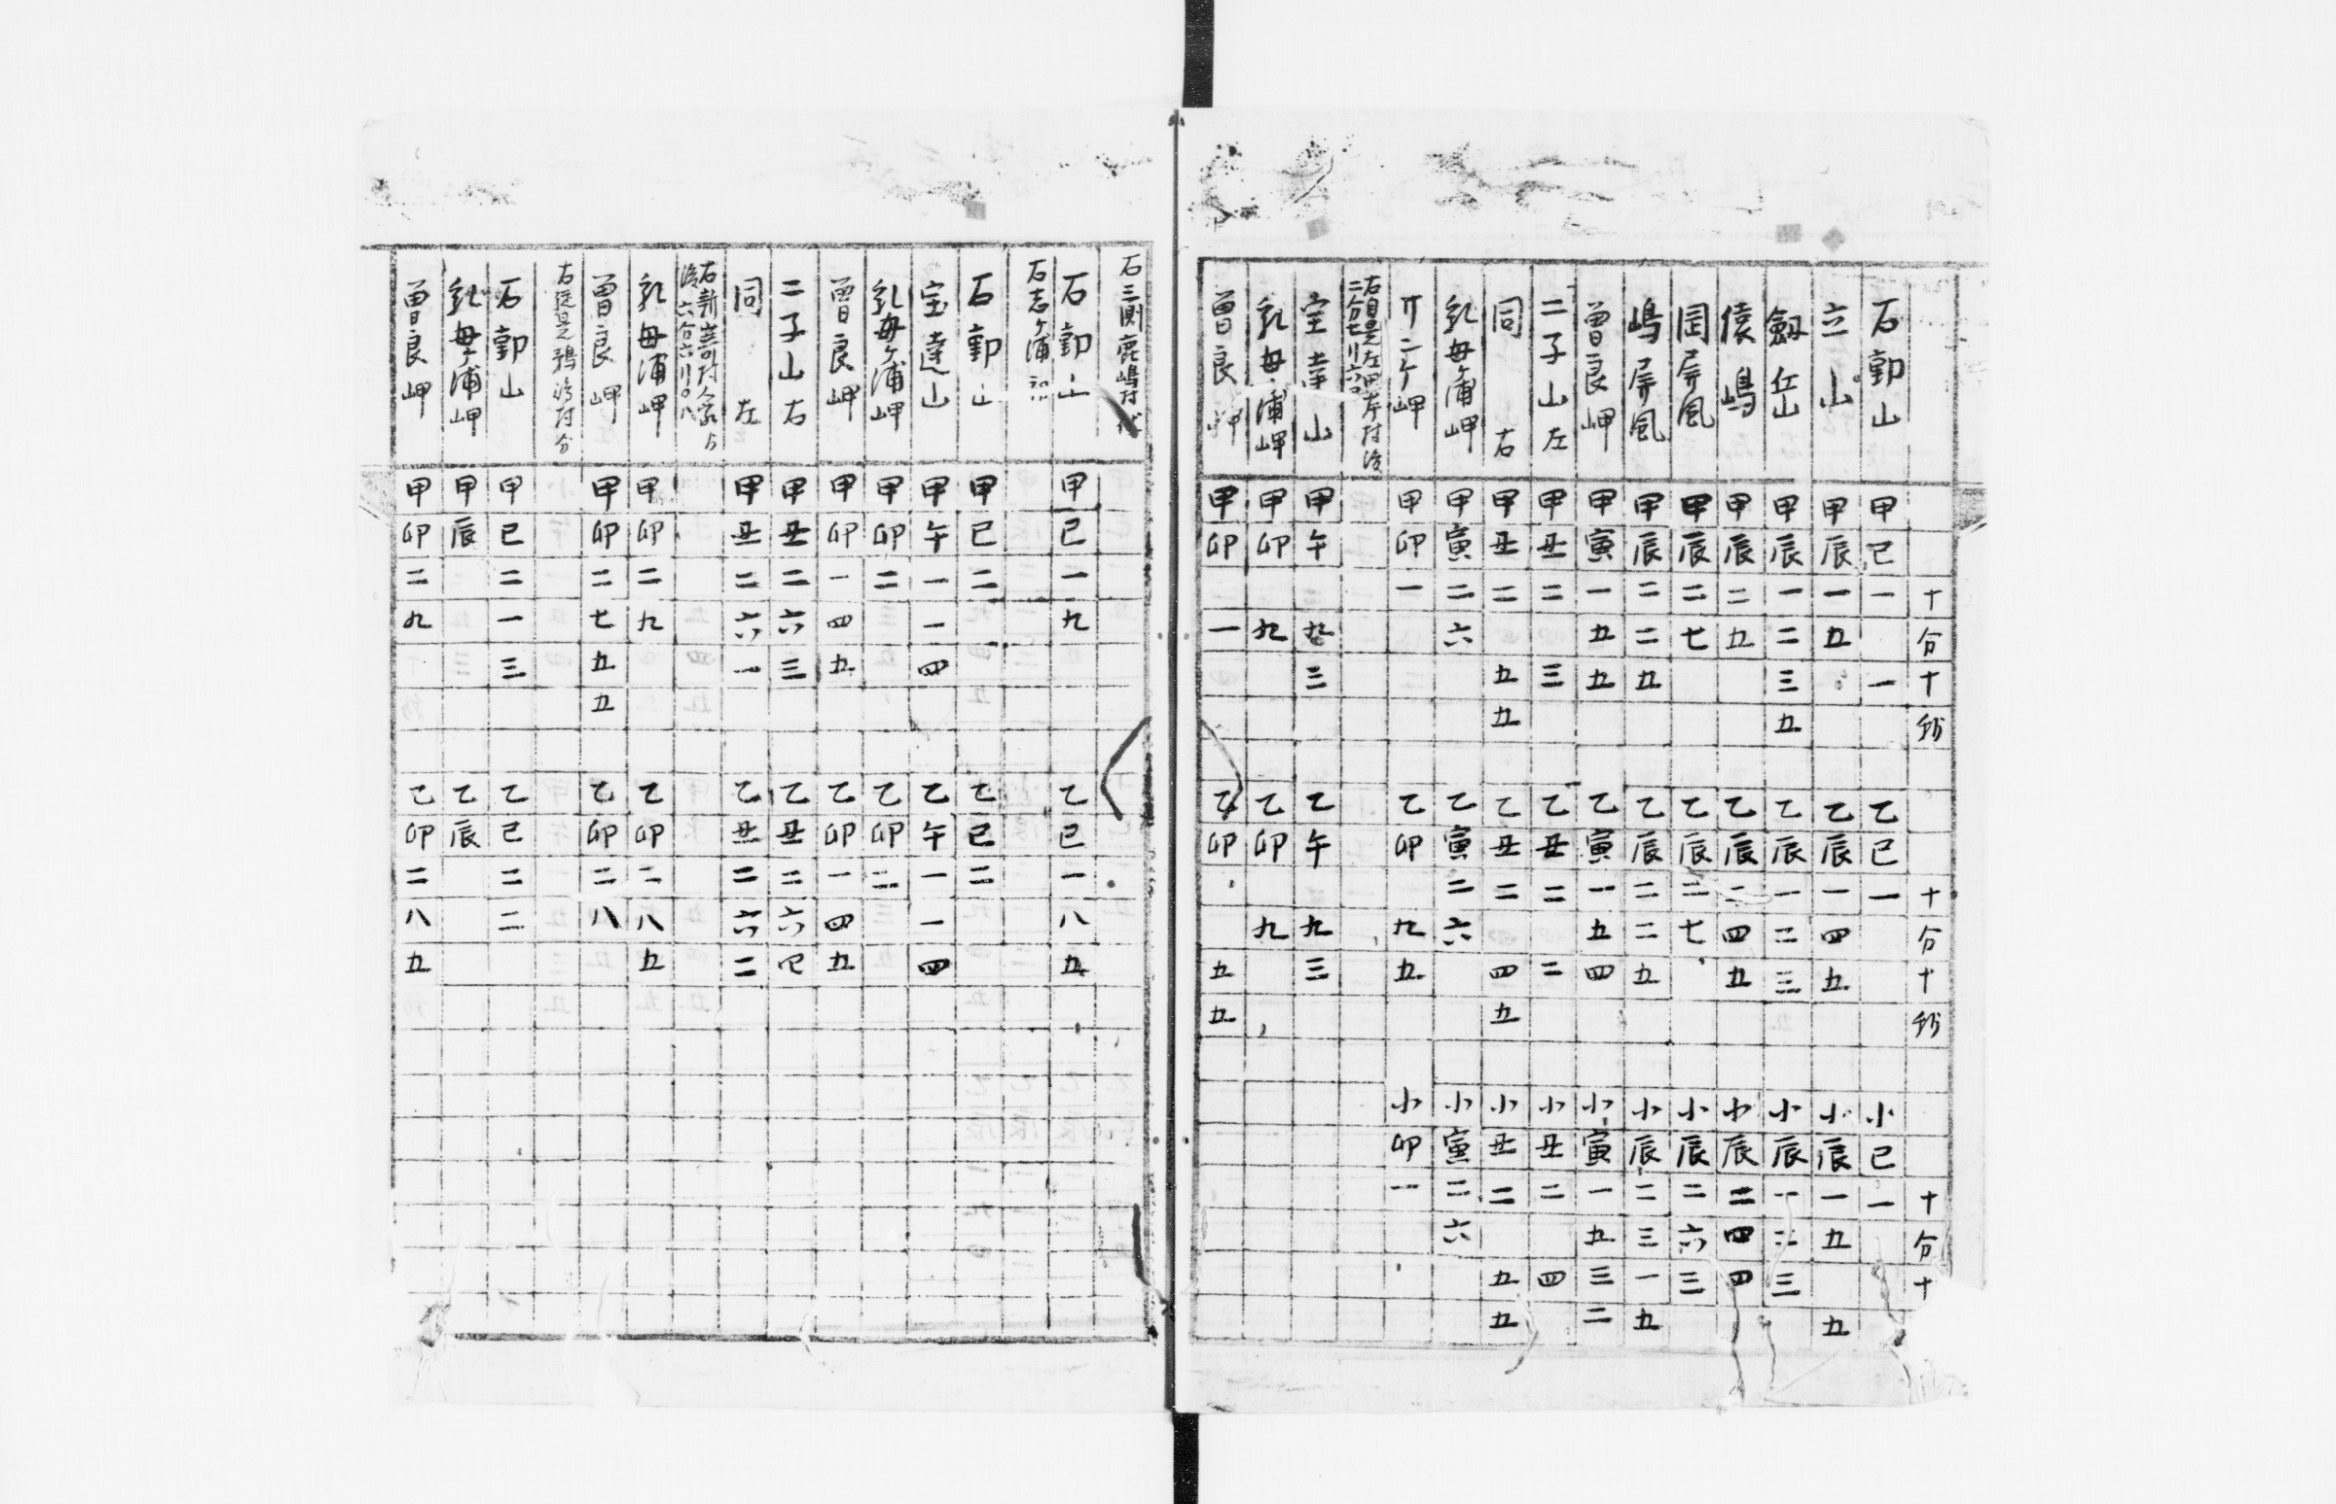 十分十釸 十分十釸 十分十
石動山 甲巳一 一 乙巳一 小巳一
立山 甲辰一五 乙辰一四五 小辰一五 五
劔岳 甲辰一二三五 乙辰一二三 小辰一二三
傣嶋 甲辰二五 乙辰二四五 小辰二四四
同屏風 甲辰二七 乙辰二七 小辰二六三
嶋屏風 甲辰二二五 乙辰二二五 小辰二三一五
曽良岬 甲寅一五五 乙寅一五四 小寅一五三二
二子山左 甲丑二 三 乙丑二 二 小丑二 四
同 右 甲丑二 五五 乙丑二 四五 小丑二 五五
乳母ヶ浦岬 甲寅二六 乙寅二六 小寅二六
丌二ヶ岬 甲卯一 乙卯 九五 小卯一
宝達山 甲午 九三 乙午 九三
乳母浦岬 甲卯 九 乙卯 九
曽良岬 甲卯 一 乙卯 五五
石三측鹿嶋村
石動山 甲巳一九 乙巳一八五
石志ヶ浦
石動山 甲巳二 乙巳二
宝達山 甲午一一四 乙午一一四
乳母ヶ浦岬 甲卯二 乙卯二
曽良岬 甲卯一四五 乙卯一四五
二子山右 甲丑二六三 乙丑二六四
同 左 甲丑二六一 乙丑二六二
乳母浦岬 甲卯二九 乙卯二八五
曽良岬 甲卯二七五五 乙卯二八
右従是鵜浦村分
石動山 甲巳二一三 乙巳二二
乳母ヶ浦岬 甲辰 乙辰
曽良岬 甲卯二九 乙卯二八五